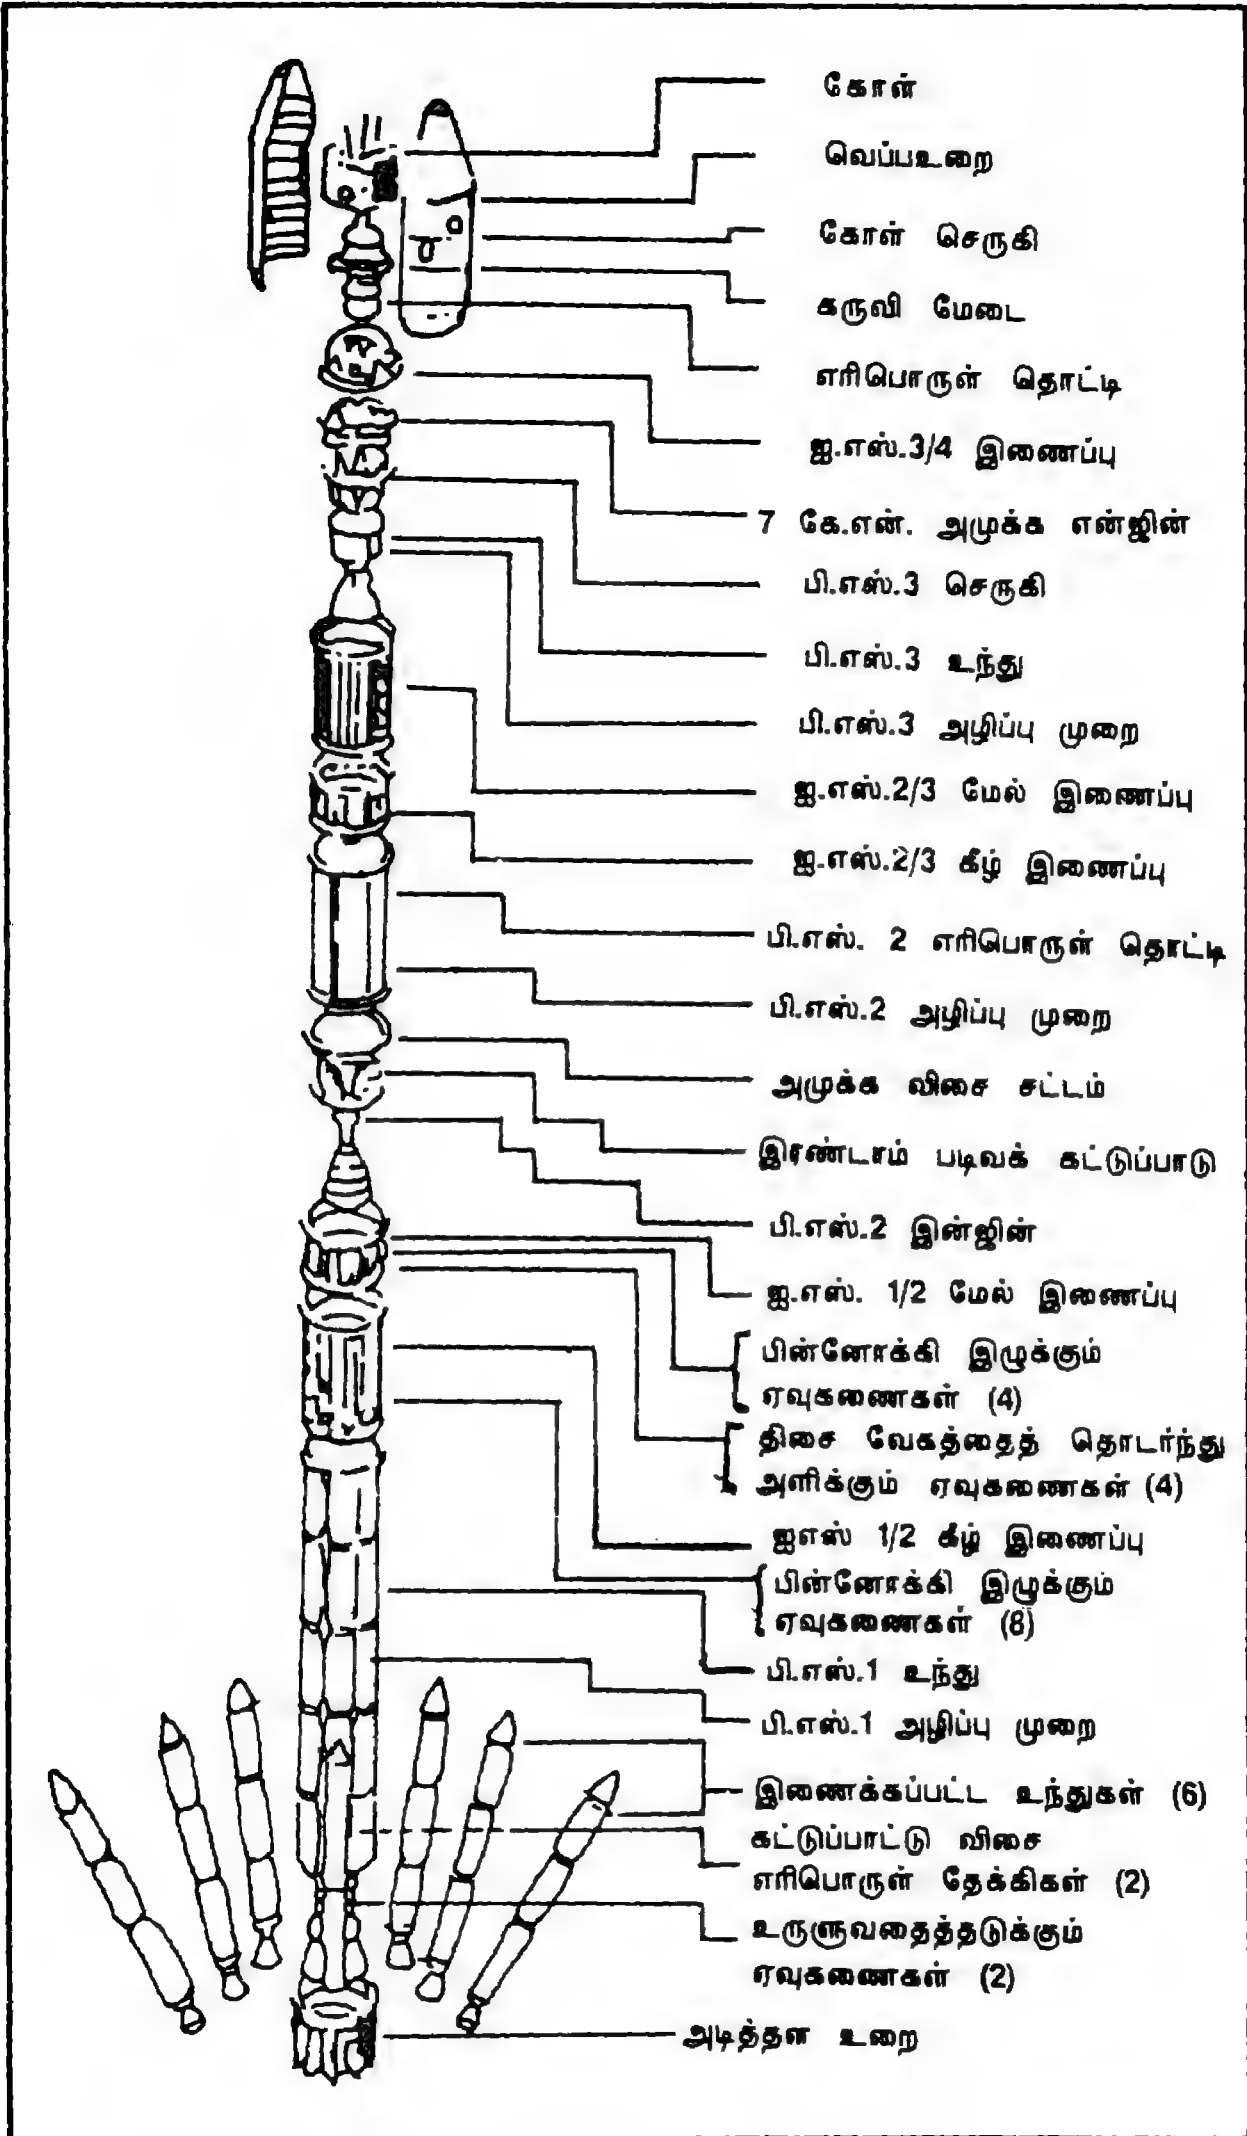 கோள்
வெப்பஉறை
கோள் செருகி
கருவி மேடை
எரிபொருள் தொட்டி
ஐ.எஸ்.3/4 இணைப்பு
7 கே.என். அமுக்க என்ஜின்
பி.எஸ்.3 செருகி
பி.எஸ்.3 உந்து
பி.எஸ்.3 அழிப்பு முறை
ஐ.எஸ்.2/3 மேல் இணைப்பு
ஐ.எஸ்.2/3 கீழ் இணைப்பு
பி.எஸ். 2 எரிபொருள் தொட்டி
பி.எஸ்.2 அழிப்பு முறை
அமுக்க விசை சட்டம்
இரண்டாம் படிவக் கட்டுப்பாடு
பி.எஸ்.2 இன்ஜின்
ஐ.எஸ். 1/2 மேல் இணைப்பு
பின்னோக்கி இழுக்கும்
ஏவுகணைகள் (4)
திசை வேகத்தைத் தொடர்ந்து
அளிக்கும் ஏவுகணைகள் (4)
ஐஎஸ் 1/2 கீழ் இணைப்பு
பின்னோக்கி இழுக்கும்
ஏவுகணைகள் (8)
பி.எஸ்.1 உந்து
பி.எஸ்.1 அழிப்பு முறை
இணைக்கப்பட்ட உந்துகள் (6)
கட்டுப்பாட்டு விசை
எரிபொருள் தேக்கிகள் (2)
உருளுவதைத்தடுக்கும்
ஏவுகணைகள் (2)
அடித்தள உறை